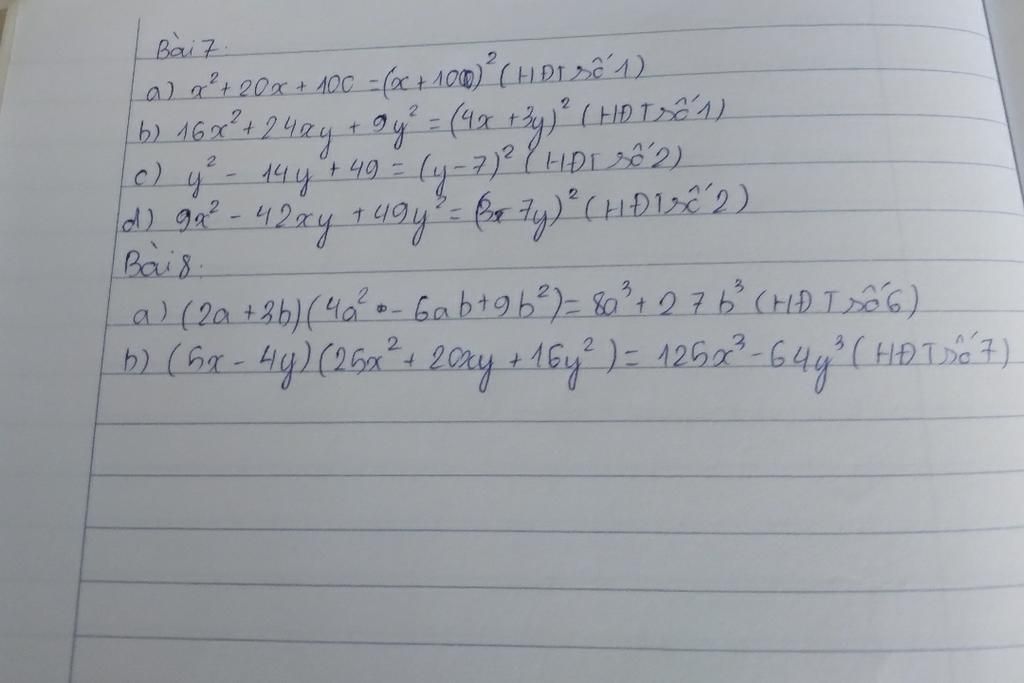 Bài 7:
a) x² + 20x + 100 = (x + 10)² (HĐT số 1)
b) 16x² + 24xy + 9y² = (4x + 3y)² (HĐT số 1)
c) y² - 14y + 49 = (y - 7)² (HĐT số 2)
d) 9x² - 42xy + 49y² = (3x - 7y)² (HĐT số 2)
Bài 8:
a) (2a + 3b)(4a² - 6ab + 9b²) = 8a³ + 27b³ (HĐT số 6)
b) (5x - 4y)(25x² + 20xy + 16y²) = 125x³ - 64y³ (HĐT số 7)